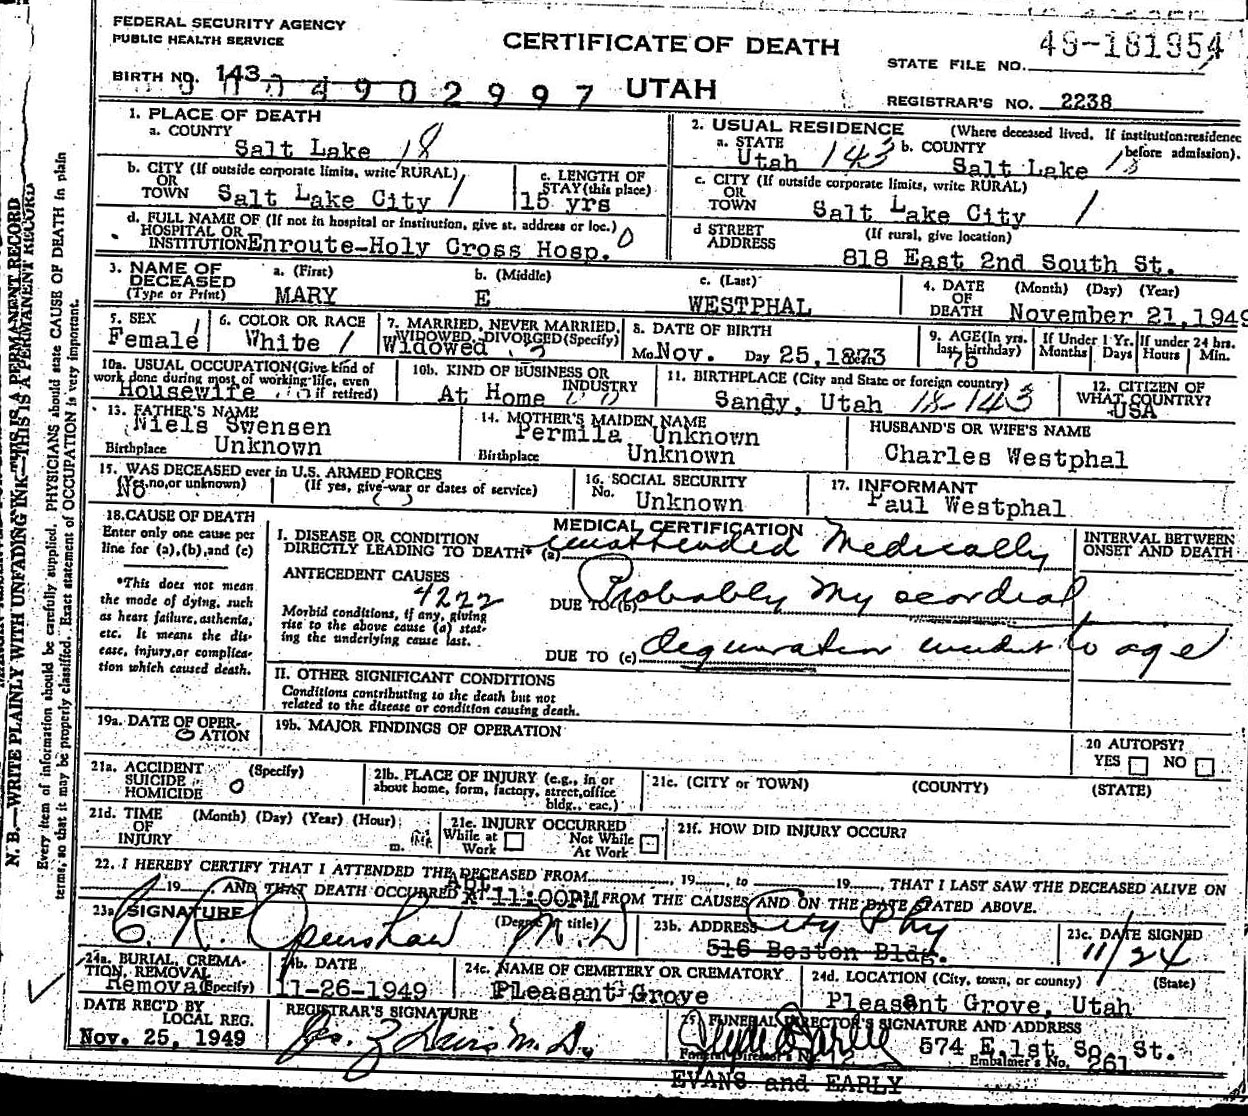 FEDERAL SECURITY AGENCY
PUBLIC HEALTH SERVICE
CERTIFICATE OF DEATH
STATE FILE NO. 49-181954
BIRTH NO. 143
4902997
UTAH
REGISTRAR'S NO. 2238
1. PLACE OF DEATH
a. COUNTY
Salt Lake 18
2. USUAL RESIDENCE (Where deceased lived. If institution:residence before admission).
a. STATE Utah 143 b. COUNTY Salt Lake 18
b. CITY (If outside corporate limits, write RURAL)
OR TOWN Salt Lake City 1
c. LENGTH OF STAY (this place)
15 yrs
c. CITY (If outside corporate limits, write RURAL)
OR TOWN Salt Lake City 1
d. FULL NAME OF (If not in hospital or institution, give st. address or loc.)
HOSPITAL OR INSTITUTION Enroute-Holy Cross Hosp. 0
d STREET ADDRESS (If rural, give location)
818 East 2nd South St.
3. NAME OF DECEASED (Type or Print)
a. (First) MARY
b. (Middle) E
c. (Last) WESTPHAL
4. DATE OF DEATH (Month) (Day) (Year)
November 21, 1949
5. SEX 1
Female
6. COLOR OR RACE
White 1
7. MARRIED, NEVER MARRIED, WIDOWED, DIVORCED (Specify)
Widowed
8. DATE OF BIRTH
Mo. Nov. Day 25, 1873
9. AGE (In yrs. last birthday)
75
If Under 1 Yr. Months Days
If under 24 hrs. Hours Min.
10a. USUAL OCCUPATION (Give kind of work done during most of working life, even if retired)
Housewife
10b. KIND OF BUSINESS OR INDUSTRY
At Home
11. BIRTHPLACE (City and State or foreign country)
Sandy, Utah 18-143
12. CITIZEN OF WHAT COUNTRY?
USA
13. FATHER'S NAME
Niels Swensen
Birthplace Unknown
14. MOTHER'S MAIDEN NAME
Permila Unknown
Birthplace Unknown
HUSBAND'S OR WIFE'S NAME
Charles Westphal
15. WAS DECEASED ever in U.S. ARMED FORCES
(Yes, no, or unknown) (If yes, give war or dates of service)
No
16. SOCIAL SECURITY No.
Unknown
17. INFORMANT
Paul Westphal
18. CAUSE OF DEATH
Enter only one cause per line for (a), (b), and (c)
*This does not mean the mode of dying, such as heart failure, asthenia, etc. It means the disease, injury, or complication which caused death.
MEDICAL CERTIFICATION
I. DISEASE OR CONDITION DIRECTLY LEADING TO DEATH* (a) unattended Medically
ANTECEDENT CAUSES
4222
Morbid conditions, if any, giving rise to the above cause (a) stating the underlying cause last.
DUE TO (b) Probably Myocordial
DUE TO (c) degeneration incident to age
INTERVAL BETWEEN ONSET AND DEATH
II. OTHER SIGNIFICANT CONDITIONS
Conditions contributing to the death but not related to the disease or condition causing death.
19a. DATE OF OPERATION
19b. MAJOR FINDINGS OF OPERATION
20 AUTOPSY?
YES NO
21a. ACCIDENT SUICIDE HOMICIDE (Specify)
0
21b. PLACE OF INJURY (e.g., in or about home, form, factory, street, office bldg., eac.)
21c. (CITY or TOWN) (COUNTY) (STATE)
21d. TIME OF INJURY (Month) (Day) (Year) (Hour) m.
21e. INJURY OCCURRED
While at Work Not While At Work
21f. HOW DID INJURY OCCUR?
22. I HEREBY CERTIFY THAT I ATTENDED THE DECEASED FROM 19, to 19, THAT I LAST SAW THE DECEASED ALIVE ON
19 AND THAT DEATH OCCURRED AT 11:00PM FROM THE CAUSES AND ON THE DATE STATED ABOVE.
23a SIGNATURE (Degree or title)
C. R. Openshaw M.D
23b. ADDRESS City Phy
516 Boston Bldg.
23c. DATE SIGNED
11/24
24a. BURIAL, CREMATION, REMOVAL (Specify)
Removal
24b. DATE
11-26-1949
24c. NAME OF CEMETERY OR CREMATORY
Pleasant Grove
24d. LOCATION (City, town, or county) (State)
Pleasant Grove, Utah
DATE REC'D BY LOCAL REG.
Nov. 25, 1949
REGISTRAR'S SIGNATURE
25 FUNERAL DIRECTOR'S SIGNATURE AND ADDRESS
574 E. 1st So. St.
Funeral Director's No. Embalmer's No. 261
EVANS and EARLY
N. B.—WRITE PLAINLY WITH UNFADING INK—THIS IS A PERMANENT RECORD
Every item of information should be carefully supplied. PHYSICIANS should state CAUSE OF DEATH in plain
terms, so that it may be properly classified. Exact statement of OCCUPATION is very important.